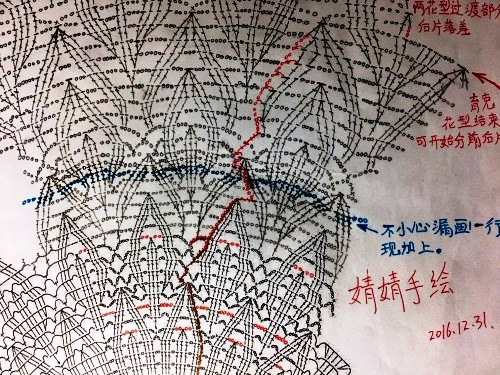 两花型过渡部分
后片落差
育克
花型结束
可开始分前后片
不小心漏画一行
现加上。
婧婧手绘
2016.12.31.